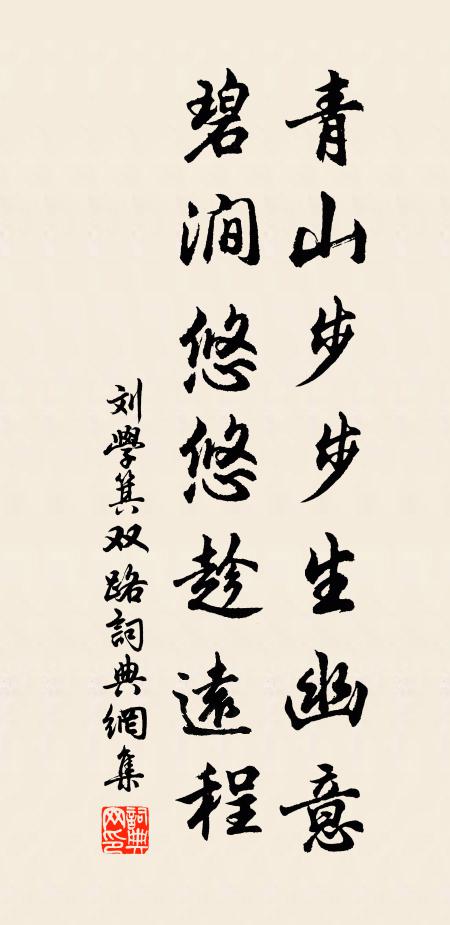 青山步步生幽意
碧澗悠悠趁遠程
刘學箕双路詞典網集
詞典
网印